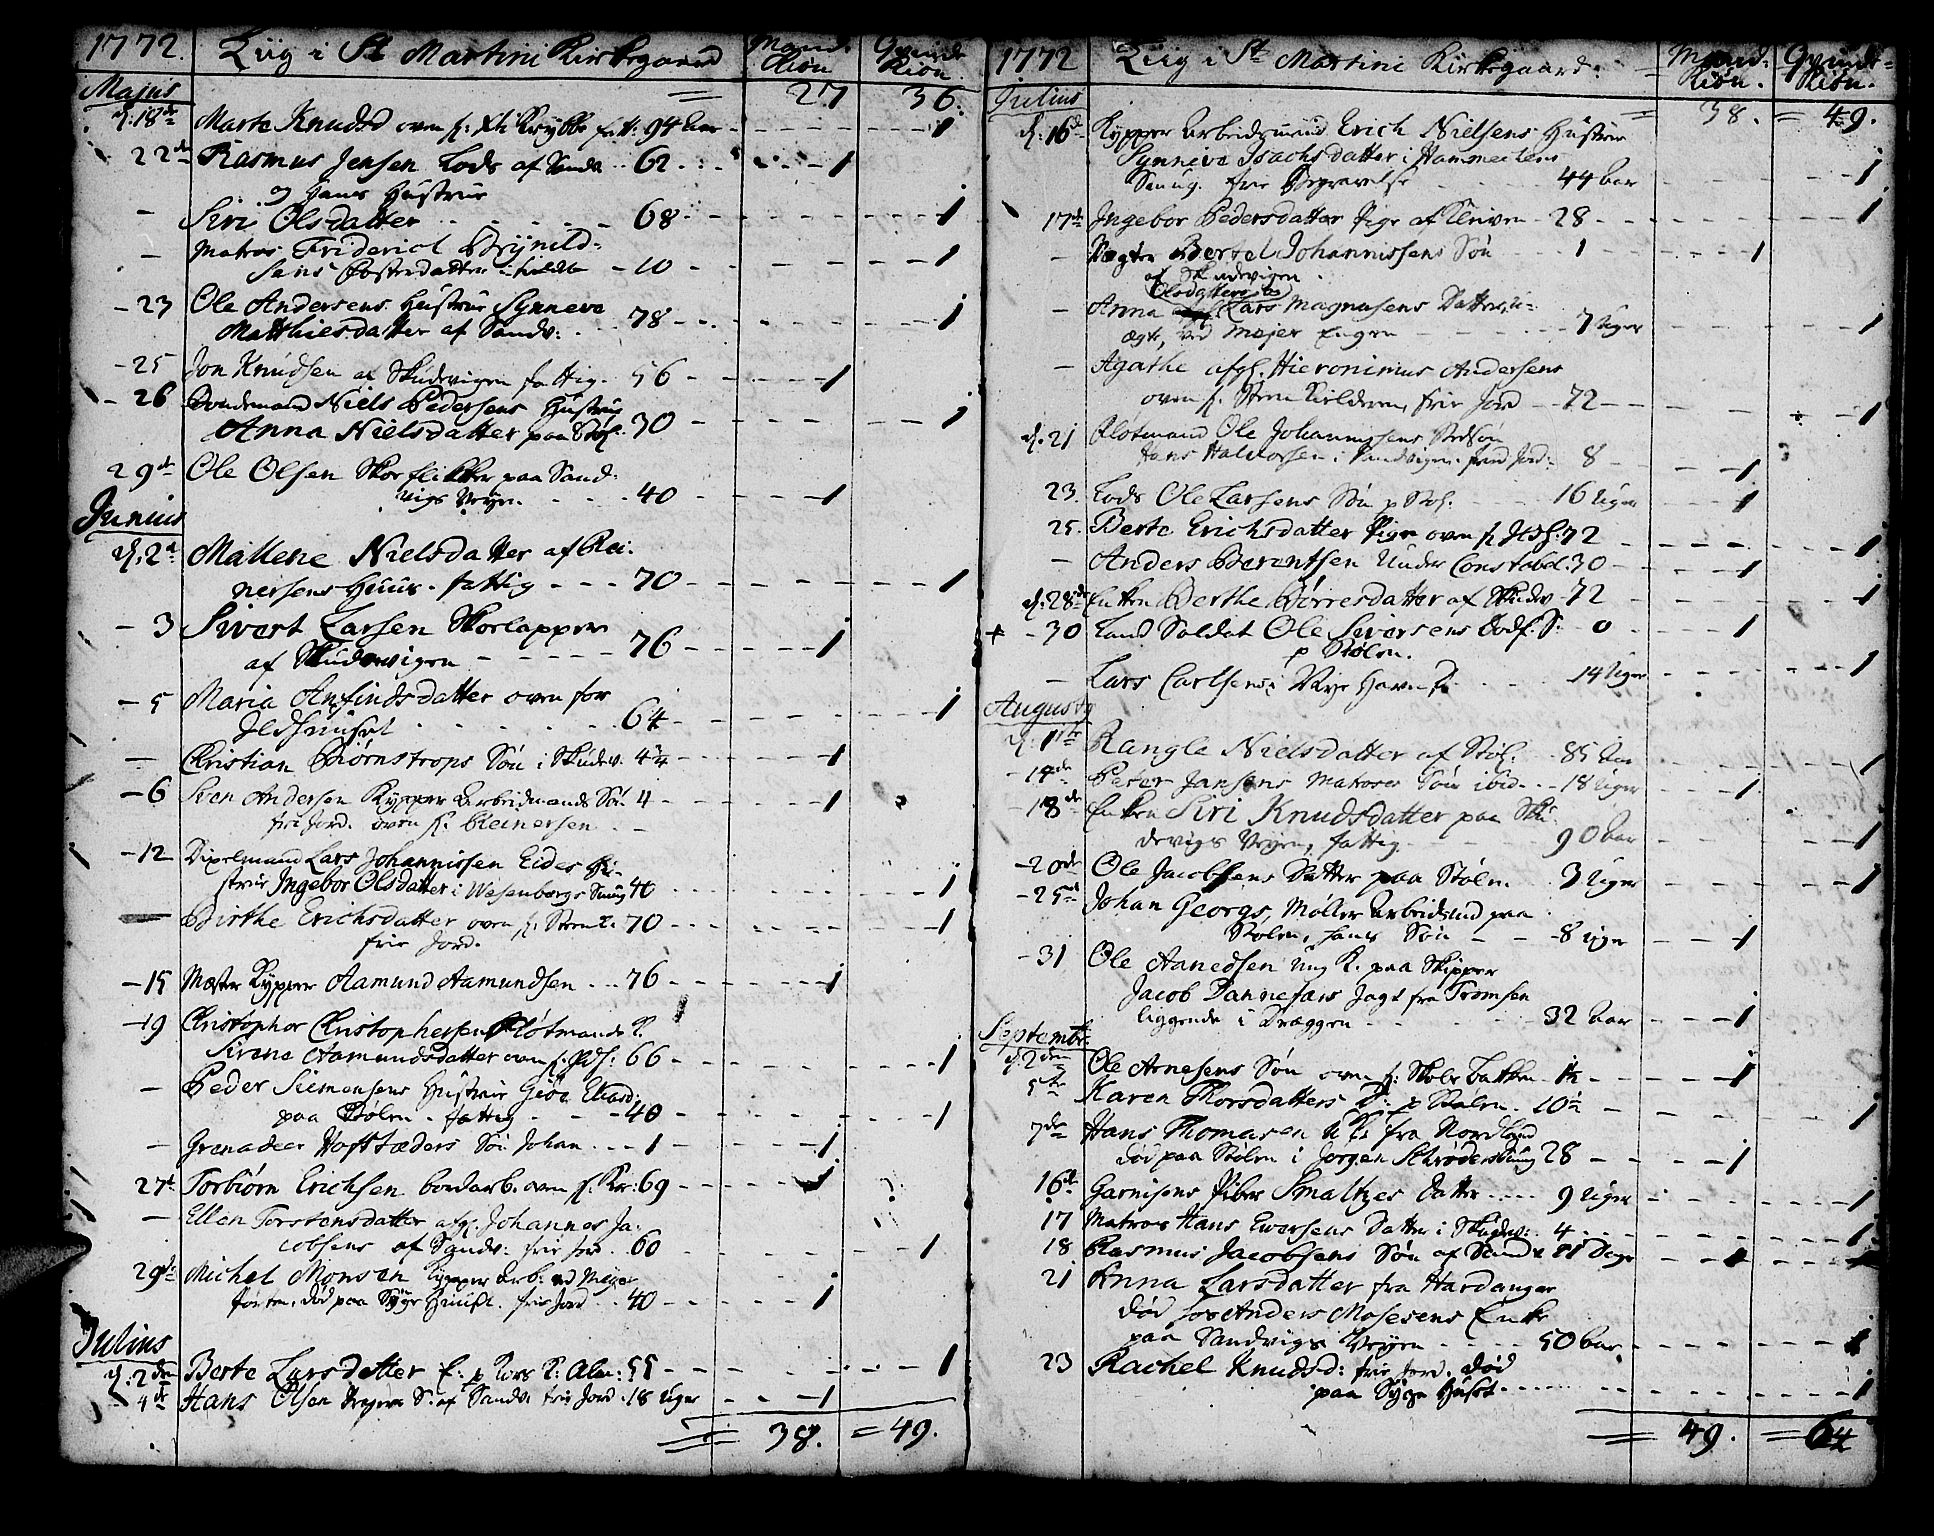 1772. Liig i St Martini Kirkegaard Mand- Kiøn Qvinde Kiøn
Majus = 27 36.
d. 18de Marte Knudsd oven f. 94 aar 1
22de Rasmus Jensen Lods af Sandv. 62 1
og hans Hustrue
- Siri Olsdatter 68 1
- Matros Friderich Brynild-
Sens Fosterdatter 10 1
- 23 Ole Andersens Hustrue Synneve
Matthiesdatter af Sandv: 78 1
- 25 Jon Knudsen af Skudevigen fattig. 56 1
- 26 Bondemand Niels Pedersens Hustrue
Anna Nielsdatter paa Støl. 30 1
29de Ole Olsen Skoeflikker paa Sand-
vigs Veyen. 40 1
Junius
d. 2d Mallene Nielsdatter af Rei-
nersens Huus. fattig 70 1
- 3 Sivert Larsen Skoelapper
af Skudevigen 76 1
- 5 Maria Anfindsdatter oven for
64 1
- Christian Biørnstrops Søn i Skudev. 1
- 6 Sven Andersen Kypper Arbeidmands Søn 4 1
fri Jord. oven f. Reinersen
- 12 Dixelmand Lars Johannissen Eides Hu-
strue Ingebor Olsdatter i Wesenbergs Smug 40 1
- Birthe Erichsdatter oven f. 70 1
frie Jord.
- 15 Mester Kypper Aamund Aamundsen 76 1
- 19 Christopher Christophersen Fløtmands K.
Sirena Aamundsdatter oven f. 66 1
- Peder Siemensens Hustrue
paa Stølen. fattig 40 1
- Grenadeer Hoffstæders Søn Johan 1 1
27d Torbiørn Erichsen bordarb. oven f. 69 1
- Ellen Torstensdatter afg. Johannes Ja-
cobsens af Sandv: frie Jord 60 1
29de Michel Monsen Kypper Arb: ved Meyer
død paa Syge Huuset. frie Jord 40 1
Julius
d. 2den Berte Larsdatter E: p 55 1
4de Hans Olsen S. af Sandv. frie Jord 18 Uger 1
= 38. = 49.
1772 Liig i St Martini Kirkegaard: = Mand- Kiøn. Qvinde- Kiøn.
Julius = 38. = 49.
d. 16de Kypper Arbeidsmand Erich Nielsens Hustrue
Synneve Isachsdatter i
Smug. frie Begravelse 44 aar 1
17de Ingebor Pedersdatter Pige af 28 1
- Vægter Bertel Johannissens Søn 1 1
af Skudevigen.
Olsdatter
- Anna Lars Magnusens Datter, u-
ægte, ved Mejer 7 Uger 1
- Agathe afgl. Hieronimus Andersens
oven f. frie Jord 72 1
d. 21 Fløtmand Ole Johannissens Stedsøn
Hans Halvorsen i Sandvigen. frie Jord. 8 1
23. Lods Ole Larsens Søn p Støl. 16 Uger 1
25. Berte Erichsdatter Pige oven f. 72 1
- Anders Berentsen Under Constabel. 30 1
d. 28de Enken Berthe Børresdatter af Skudev 72 1
+ - 30 Land Soldat Ole Siversens Dødf. S. 0 1
p Stølen.
- Lars Carlsens i Nye 14 Uger 1
Augusty
d. 1te Rangle Nielsdatter af Støl. 85 Aar 1
- 14de Peter Jansens Matroses Søn ibid. 18 Uger 1
- 18de Enken Siri Knudsdatter paa Sku-
devigs Veyen, fattig 90 aar 1
- 20de Ole Jacobsens Datter paa Støln. 3 Uger 1
- 25de Johan Georgs, Møller Arbeidsmd paa
Stølen, hans Søn 8 uger 1
- 31 Ole Aanedsen ung K. paa Skipper
Jacob Jagt fra Tromsen
liggende i Dræggen 32 Aar 1
Septembr:
d. 2den Ole Arnesens Søn oven f: Stole 1½ 1
5te Karen Thorsdatters D: p Stølen. 10 1
7de Hans Thomasen U. K. fra Nordland
død paa Stølen i Jørgen Schrøders Smug 28 1
16de Garnisons Piber Smaltzes Datter 9 Uger 1
17 Matros Hans Ewersens Datter i Skudev: 4 1
18 Rasmus Jacobsens Søn af Sandv 11 Dage 1
21 Anna Larsdatter fra Hardanger
død hos Anders Mosesens Enke
paa Sandvigs Veyen 50 aar 1
23 Rachel Knudsd: frie Jord. død
paa Syge Huset 1
= 49. = 64